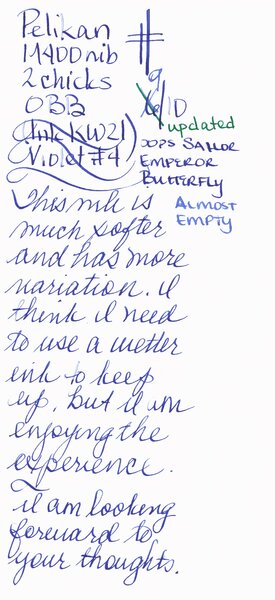 Pelikan #
M400 nib 9
2 chicks
OBB /10
Ink KWZI updated
Violet #4 OOPS SAILOR
EMPEROR
BUTTERFLY
ALMOST
EMPTY
This nib is
much softer
and has more
variation. I
think I need
to use a wetter
ink to keep
up, but I am
enjoying the
experience.
I am looking
forward to
your thoughts.